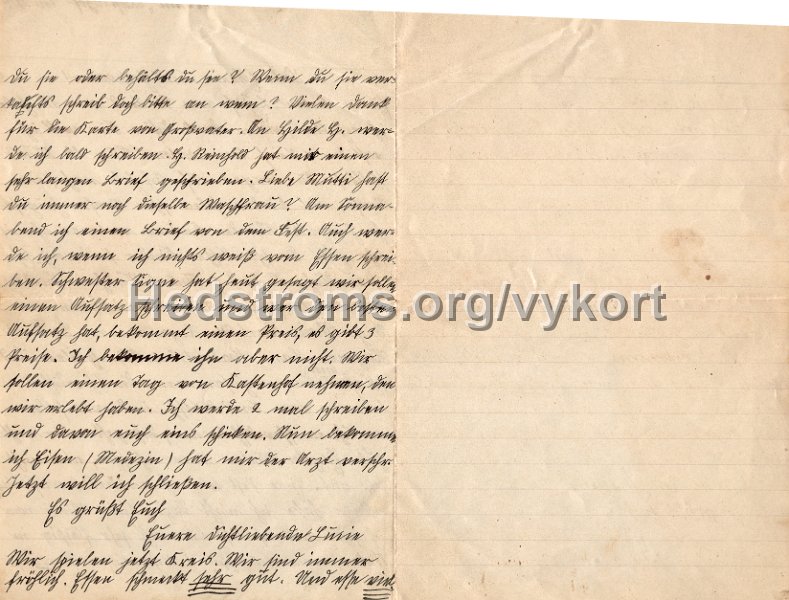 du sie oder behälts du sie? Wenn du sie ver-
kaufsts schreib doch bitte an wem? Vielen Dank
für die Karte von Großvater. An Hilde H. wer-
de ich bald schreiben. H. Reinhold hat mir einen
sehr langen Brief geschrieben. Liebe Mutti hast
du immer noch dieselbe Waschfrau? Am Sonna-
bend ich einen Brief von dem Fest. Auch wer-
de ich, wenn ich nichts weiß vom Essen schrei-
ben. Schwester Signe hat heut gesagt wir sollen
einen Aufsatz schreiben und wer den besten
Aufsatz hat, bekommt einen Preis, es gibt 3
Preise. Ich bekomme ihn aber nicht. Wir
sollen einen Tag von Kastenhof nehmen, den
wir erlebt haben. Ich werde 2 mal schreiben
und davon euch eins schicken. Nun bekomme
ich Eisen (Medezin) hat mir der Arzt verschr.
Jetzt will ich schließen.
Es grüßt Euch
Euere dichtliebende Lucie
Wir spielen jetzt Kreis. Wir sind immer
fröhlich. Essen schmeckt sehr gut. Und esse viel.
Hedstroms.org/vykort